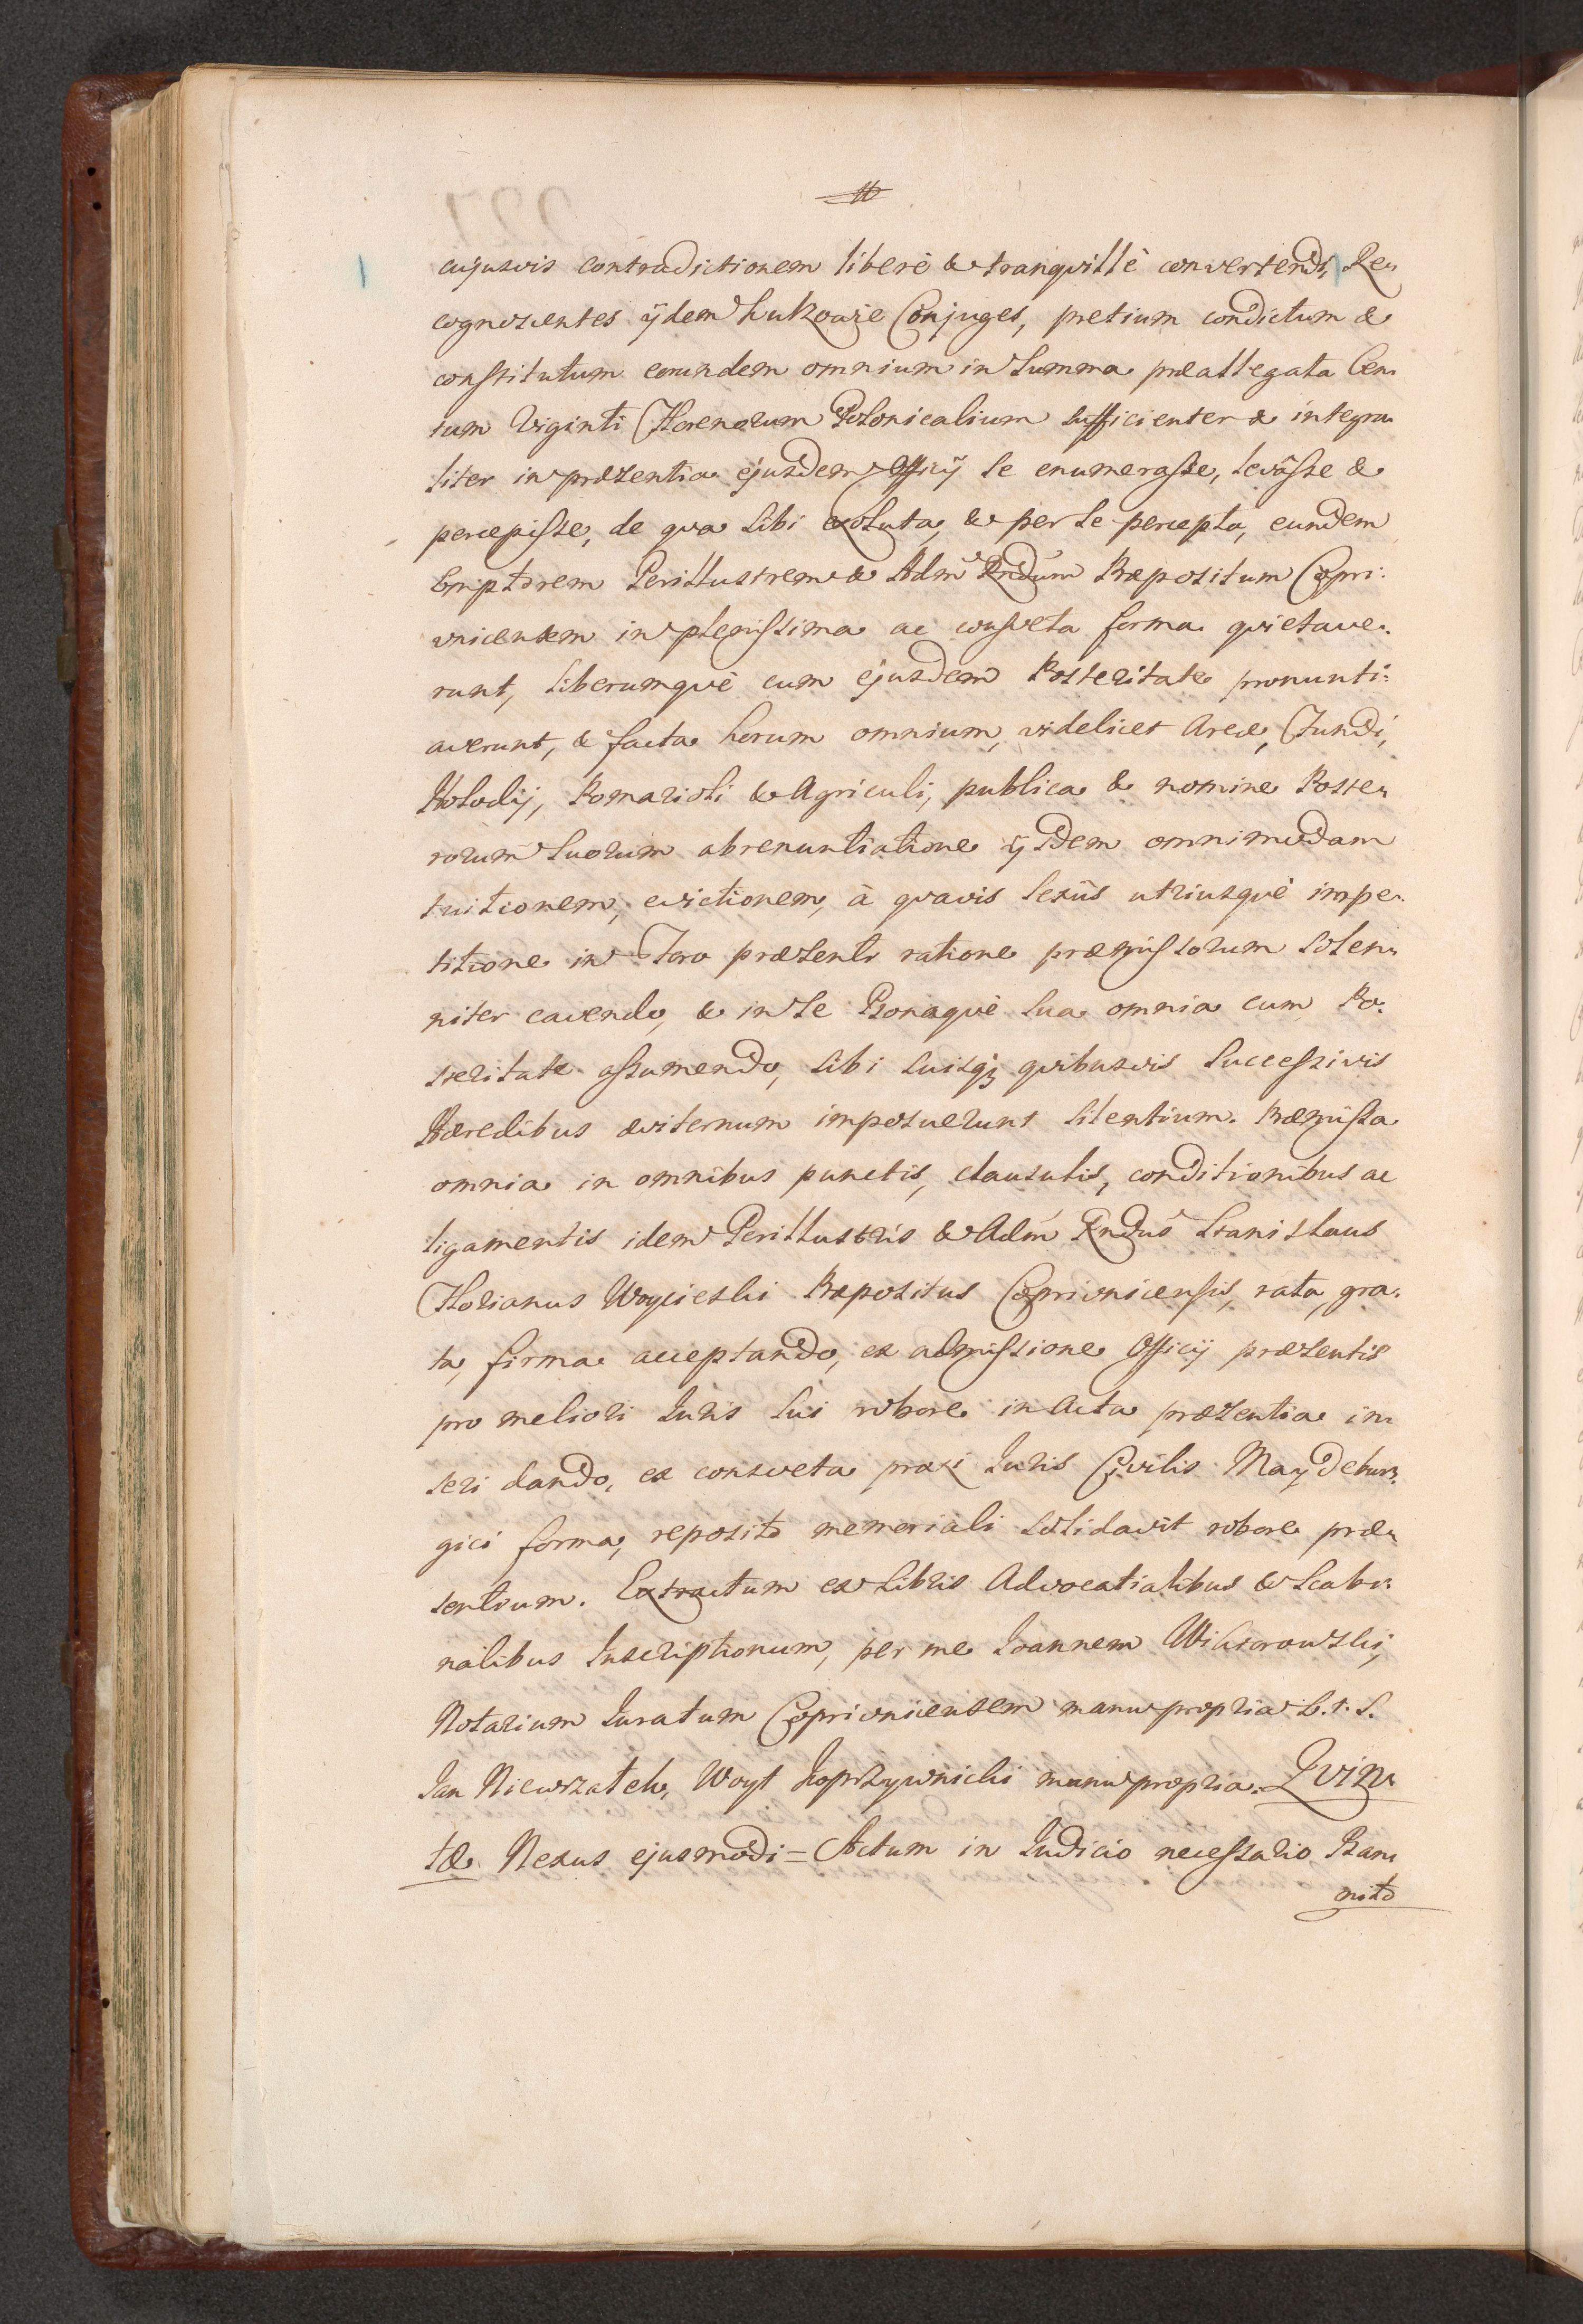 cujusvis contradictionem liberè & tranquillè convertendi, Re„
cognoscentes ijdem Lukowie Conjuges, pretium condictum &
constitutum eorundem omnium in Summa præallegata Cen„
tum Viginti Florenorum Polonicalium sufficienter & integra„
liter in præsentia ejusdem Officij se enumerasse, levâsse &
percepisse, de qua sibi exoluta, & per se percepta, eundem
Emptorem Perillustrem & Adm Rndum Præpositum Copri:
vnicensem in plenissima ac consveta forma quietave„
runt, liberumquè cum ejusdem Posteritate pronunti:
averunt, & facta horum omnium, videlicet Areæ, Fundi,
Pomarioli & Agriculi, publica & nomine Poste„
rorum Suorum abrenuntiatione ijdem omnimodam
tuitionem, evictionem, à quavis Sexûs utriusquè impe„
titione in Foro præsenti ratione præmissorum solen„
niter cavendo, & in se Bonaquè sua omnia cum Po„
steritate assumendo, sibi suisq; quibusvis Successivis
Hæredibus æviternum imposuerunt silentium. Præmissa
omnia in omnibus punctis, clausulis, conditionibus ac
ligamentis idem Perillustris & Adm Rndus Stanislaus
Florianus Woycieski Præpositus Coprivnicensis, rata, gra„
ta, firma acceptando, ex admissione Officij præsentis
pro meliori Juris sui robore in Acta præsentia in„
seri dando, ex consveta praxi Juris Civilis Maydebur„
gici forma, reposito memoriali solidavit robore præ„
sentium. Extractum ex Libris Advocatialibus & Scabi„
nalibus Inscriptionum, per me Joannem
Notarium Juratum Coprivnicensem manu propria L.+.S.
Jan Niewrzałek, Woyt Koprzywnicki manu propria. Qvin„
tæ Nexus ejusmodi = Actum in Judicio necessario Ban„
nito